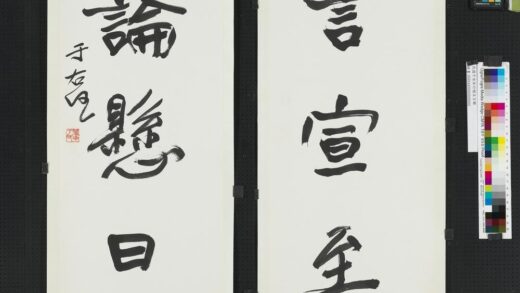 言宣至
論懸日
于右任